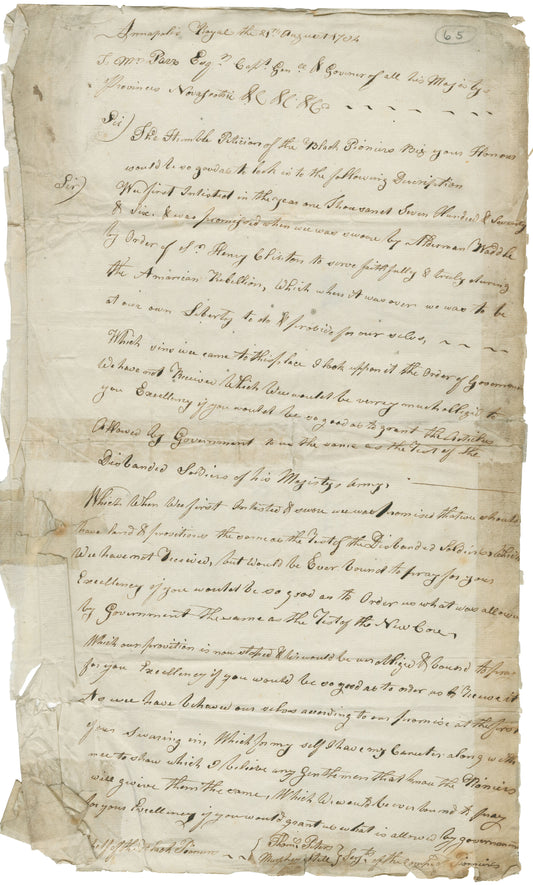 65
Annapolis Royal the 21th August 1784
Parr Esqr Capt Gen & Governer of all his Majestys
Provinces Novascotia &C &C &Ca
Sir) The Humble Petition of the Black Pioniers Beg your Honour
would be so good as to look in to the following Discription
Sir) We first Intisted in the year one Thousand Seven Hundred & Seventy
& Six & was promised when we was swore by Alderman Waddle
by Order of Sr Henry Clinton to serve faithfully & truly during
the Amarican Rebellion, Which when it was over we was to be
at our own Liberty to do & provide for our selvs,
Which sins we came to this place I look uppon it the Order of Government
We have not Received Which We would be verry much obliged to
you Excellency if you would be so good as to grant the Articles
Allowed by Government to us the same as the Test of the
Disbanded Soldiers of his Majestys Army,
Which When We first Intisted & swore we was Promised that we should
have land & provitions the same as the Test of the Disbanded Soldiers Which
We have not Received, but Would be Ever bound to pray for your
Excellency if you would be so good as to Order us what was allowed
by Government the same as the Test of the New
Which our provition is now stoped & We would be obliged & bound to pray
for you Excellency if you would be so good as to order us to Receve it
No wee have behaved our selvs according to our promise at the first
your Swaring in, Which for my self I have my along with
mee to show which I believe any Gentlemen that know the Pioniers
will give them the same, Which We would be ever bound to pray
for your Excellency if you would grant us what is allowed by government
half of the Black Pioniers { Thomas Peters
Murphy Still } Serjts of the Pioniers